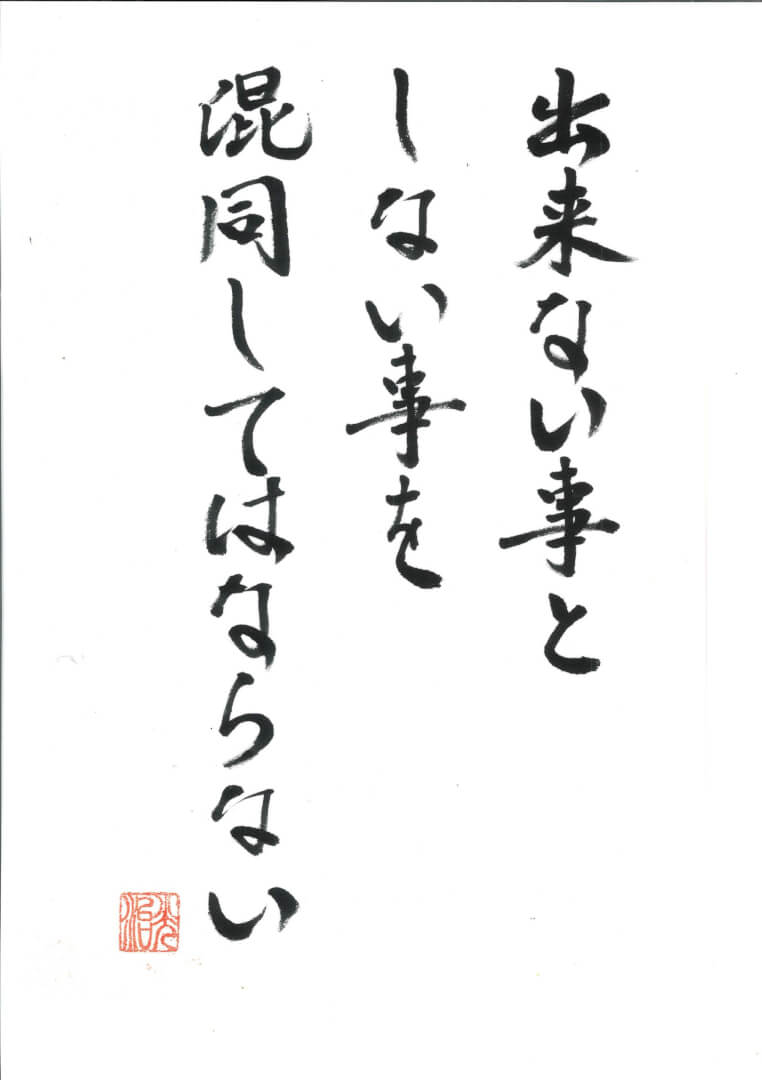 出来ない事と
しない事を
混同してはならない